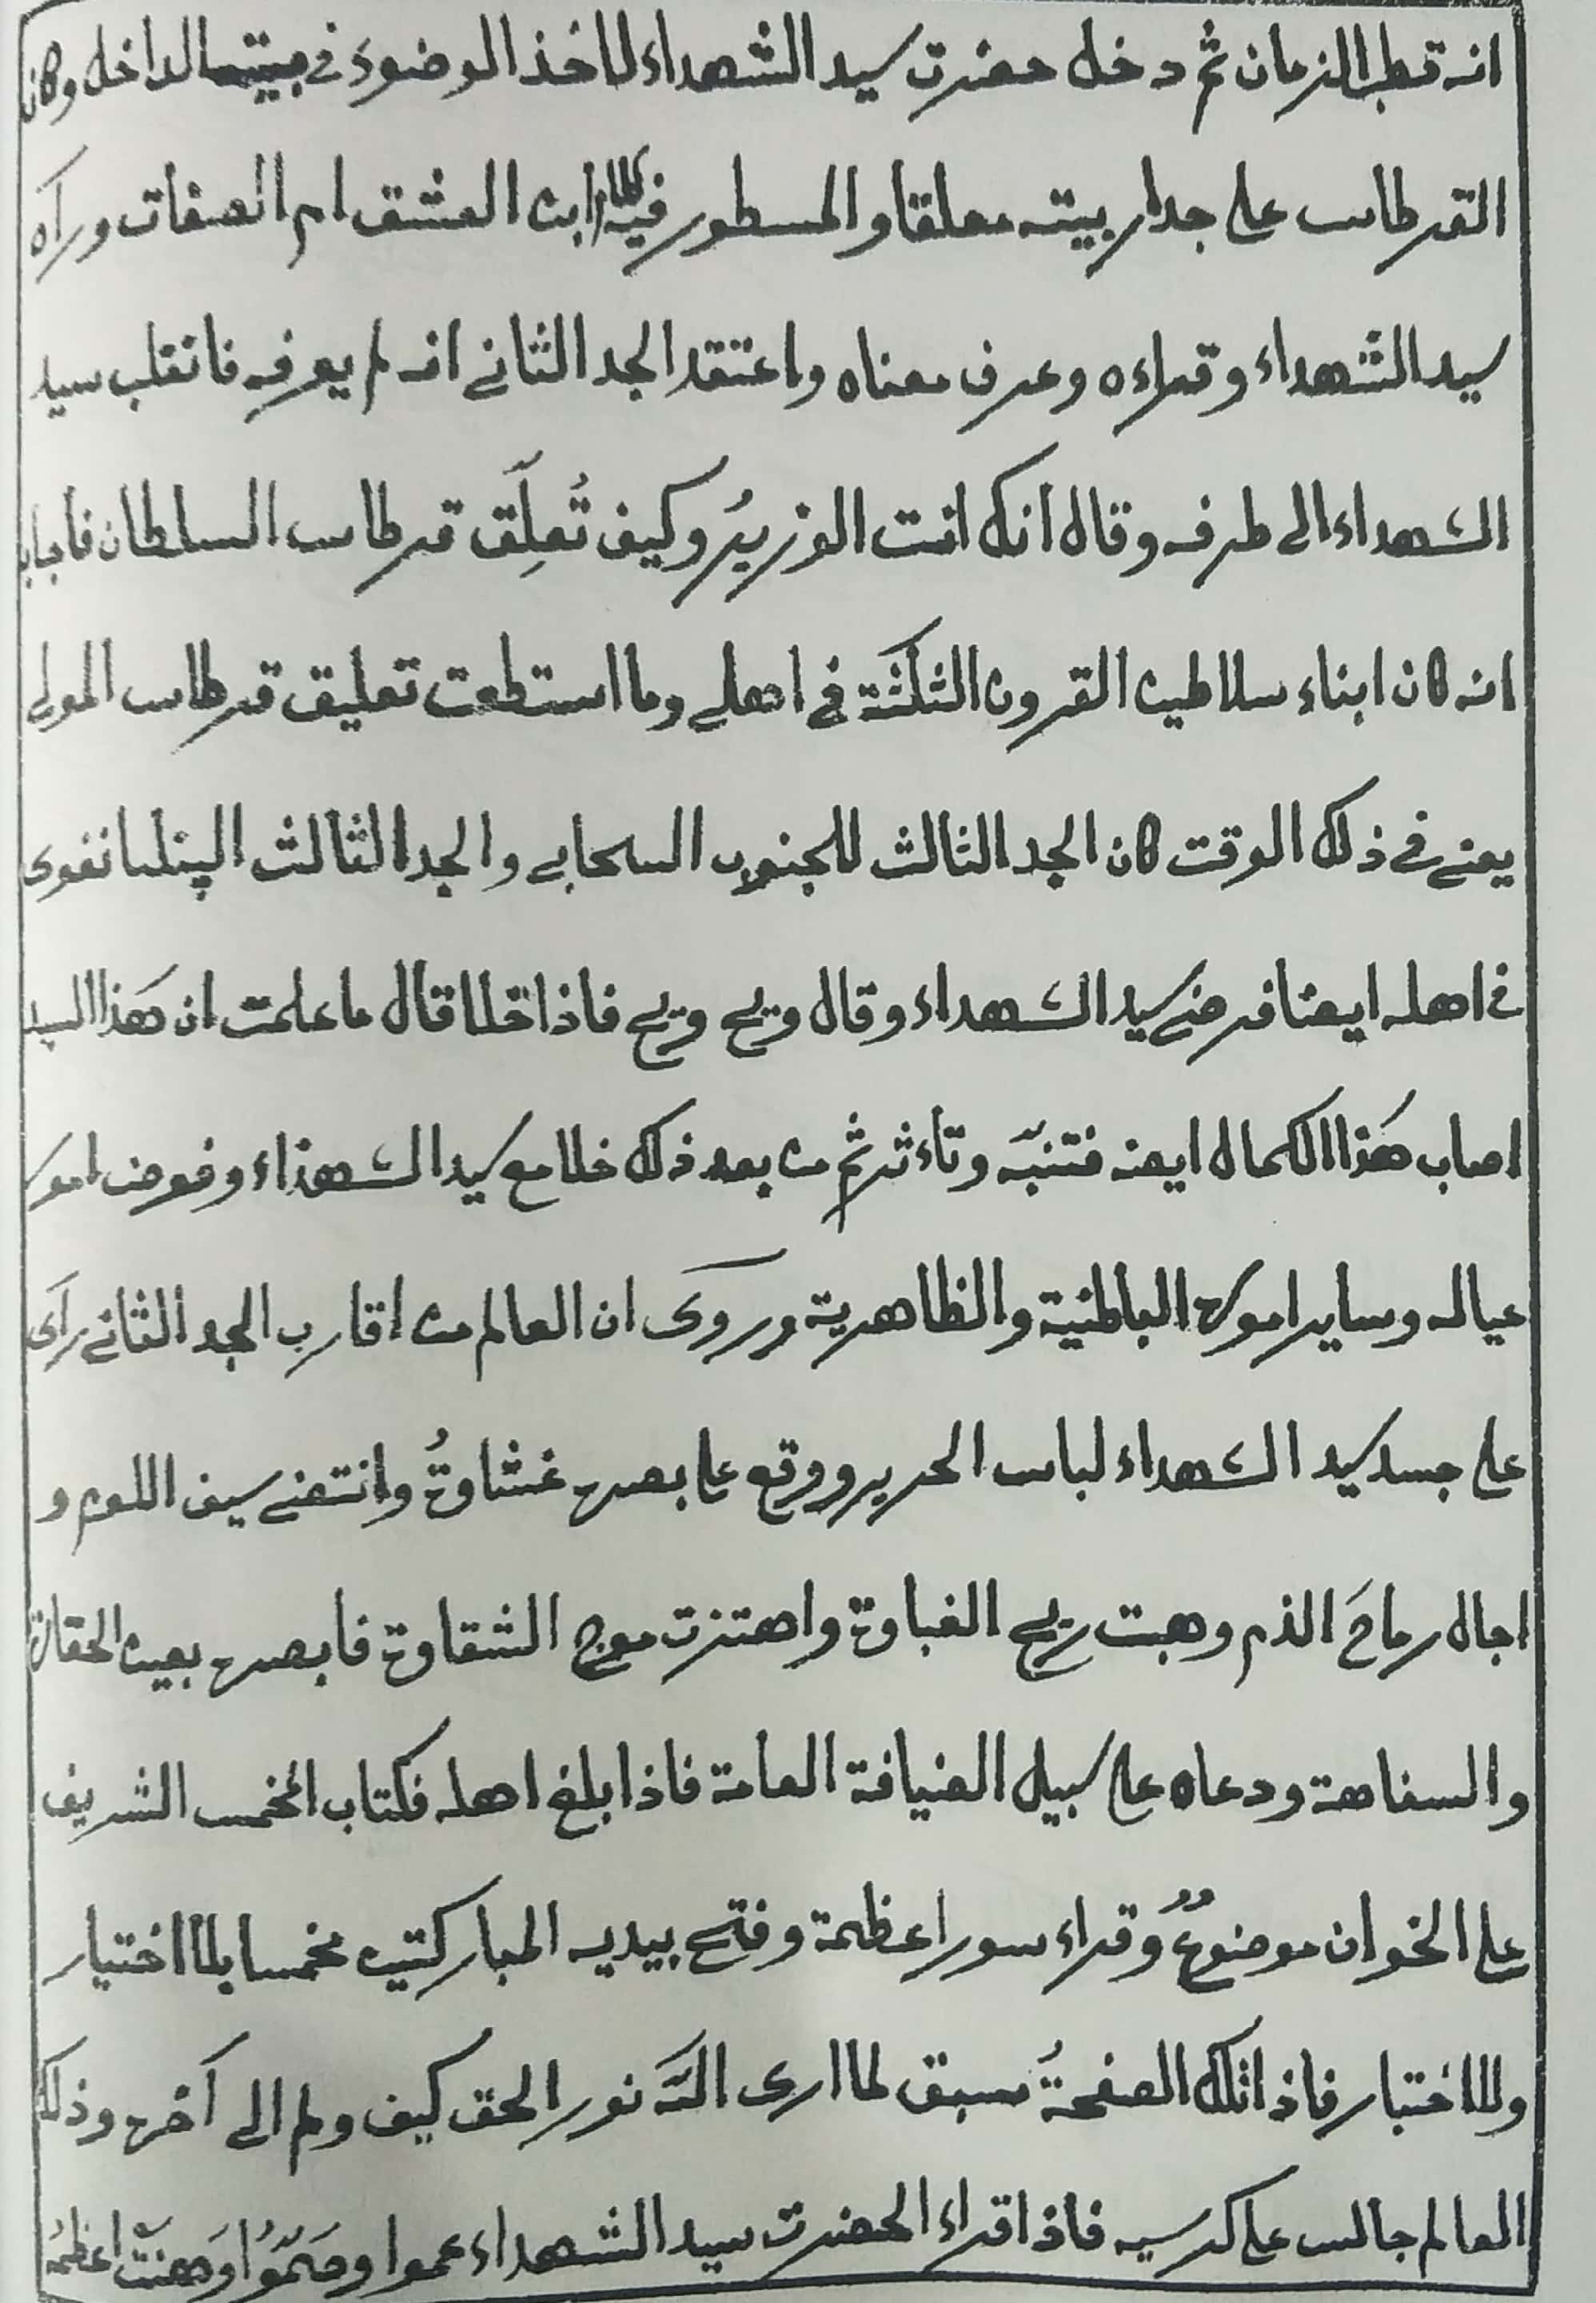 انه قطب الزمان ثم دخل حضرت سيد الشهداء لاخذ الوضوء في بيته الداخل وكان
القرطاس على جدار بيته معلقا والمسطور فيه ابن العشق ام الصفات ورآه
سيد الشهداء وقراءه وعرف معناه واعتقد الجد الثاني انه لم يعرفه فانقلب سيد
الشهداء الى طرفه وقال انك انت الوزيرُ وكيف تُعلِّق قرطاس السلطان فاجابـ
انه كان ابناء سلاطين القرون الثلثة في اهلي وما استطعت تعليق قرطاس المولى
يعني في ذلك الوقت كان الجد الثالث للجنوب السحابي والجد الثالث الپنلبانغوى
في اهله ايضا فرضي سيد الشهداء وقال ويح ويح فاذا خلا قال ما علمت ان هَذا السيد
اصاب هَذا الكمال ايضه فتنبّه وتاءثر ثم من بعد ذلك خلا مع سيد الشهذاء وفوض امور
عياله وساير اموره الباطنية والظاهرية وروى ان العالم من اقارب الجد الثاني رآى
على جسد سيد الشهداء لباس الحرير ووقع على بصره غشاوةُ وانتضى سيف اللوم و
اجال رماحَ الذم وهبت ريح الغباوة واهتزت موج الشقاوة فابصره بعين الحقارة
والسفاهة ودعاه على سبيل الضيافة العامة فاذا بلغ اهله فكتاب المخمس الشريف
على الخوان موضوعٌ وقراء سورا عظيمة وفتح بيديه المباركتين مخمسا بلا اختيار
ولا اختبار فاذا تلك الصفحةُ سبق لما ارى اللّه نور الحق كيف ولم الى آخره وذلك
العالم جالس على كرسيه فاذا قراء الحضرت سيد الشهداء عموا وصَمّوُا وَهنت اعظمُ